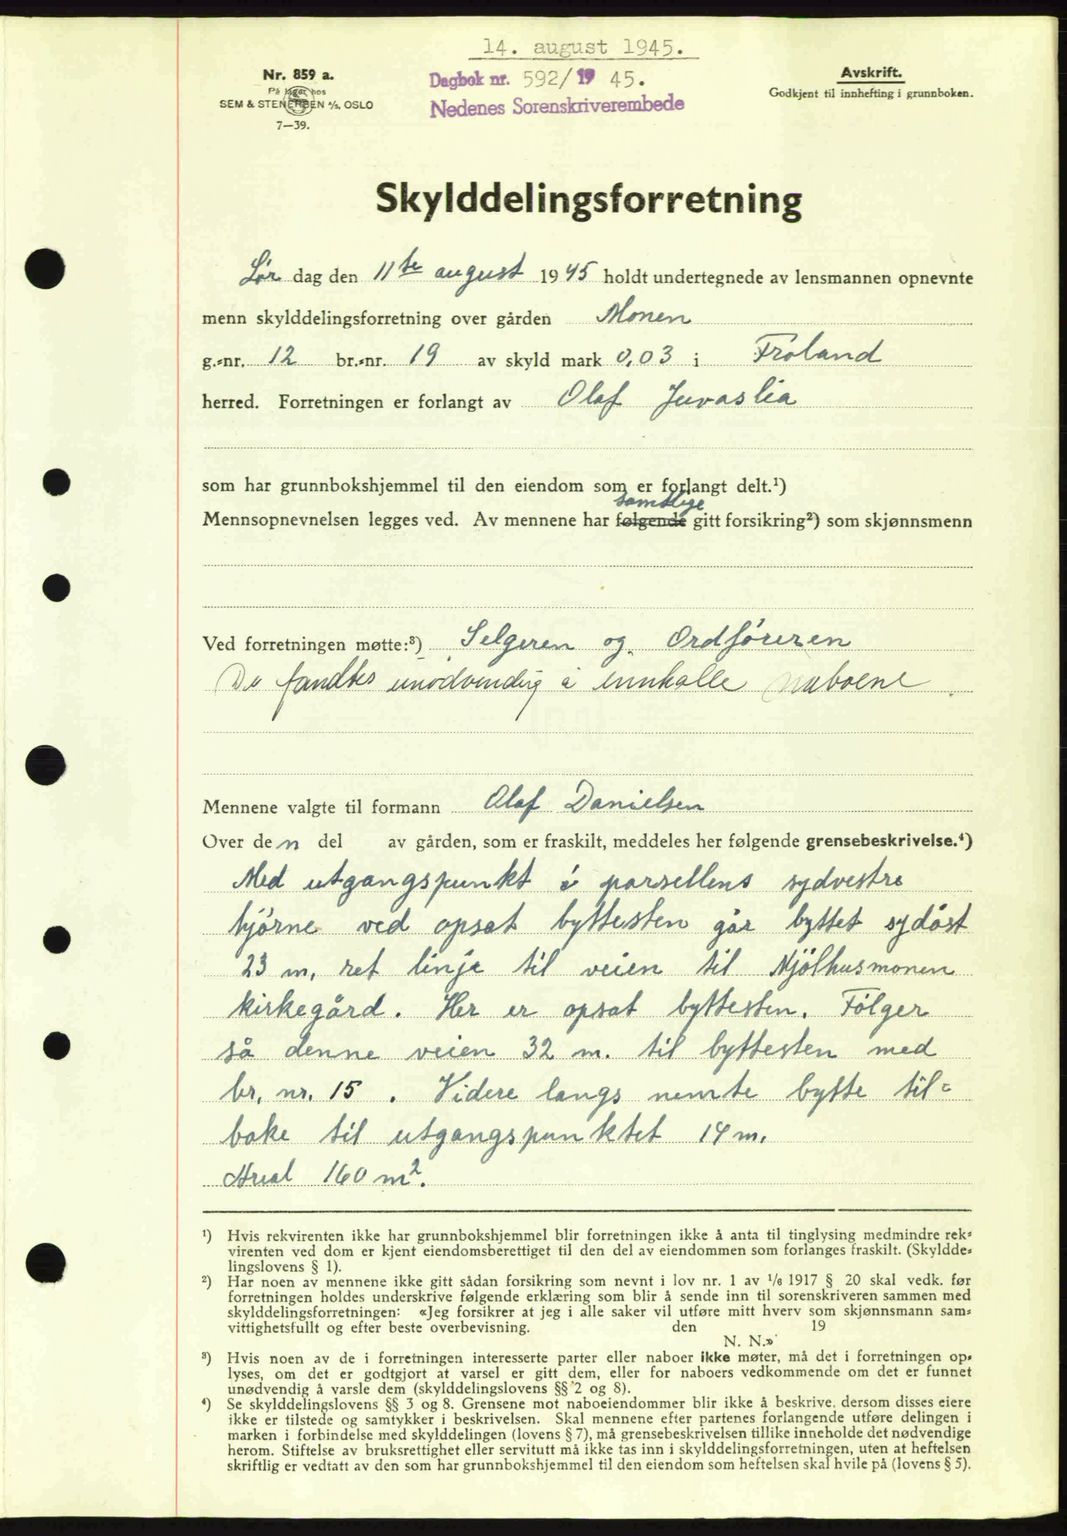 14. august 1945.
Nr. 859 a.
På lager hos
SEM & STENERSEN A/S, OSLO
7—39.
Dagbok nr. 592/19 45.
Nedenes Sorenskriverembede
Avskrift.
Godkjent til innhefting i grunnboken.
Skylddelingsforretning
Lør dag den 11te august 1945 holdt undertegnede av lensmannen opnevnte
menn skylddelingsforretning over gården Monen
g.-nr. 12 br.-nr. 19 av skyld mark 0,03 i Froland
herred. Forretningen er forlangt av Olaf Juvaslia
som har grunnbokshjemmel til den eiendom som er forlangt delt.¹)
samtlige
Mennsopnevnelsen legges ved. Av mennene har følgende gitt forsikring²) som skjønnsmenn
Ved forretningen møtte:³) Selgeren og Ordføreren
De fandtes unødvendig å innkalle naboene.
Mennene valgte til formann Olaf Danielsen
Over den del av gården, som er fraskilt, meddeles her følgende grensebeskrivelse.⁴)
Med utgangspunkt i parsellens sydvestre
hjørne ved opsat byttesten går byttet sydöst
23 m, ret linje til veien til Mjölhusmonen
kirkegård. Her er opsat byttesten. Följer
så denne veien 32 m. til byttesten med
br. nr. 15. Videre langs nemte bytte til-
bake til utgangspunktet 14 m.
Areal 160 m².
¹) Hvis rekvirenten ikke har grunnbokshjemmel blir forretningen ikke å anta til tinglysing medmindre rek-
virenten ved dom er kjent eiendomsberettiget til den del av eiendommen som forlanges fraskilt. (Skyldde-
lingslovens § 1).
²) Har noen av mennene ikke gitt sådan forsikring som nevnt i lov nr. 1 av 1/6 1917 § 20 skal vedk. før
forretningen holdes underskrive følgende erklæring som blir å sende inn til sorenskriveren sammen med
skylddelingsforretningen: «Jeg forsikrer at jeg i alle saker vil utføre mitt hverv som skjønnsmann sam-
vittighetsfullt og efter beste overbevisning. den 19
N. N.»
³) Hvis noen av de i forretningen interesserte parter eller naboer ikke møter, må det i forretningen op-
lyses, om det er godtgjort at varsel er gitt dem, eller for naboers vedkommende om det er funnet
unødvendig å varsle dem (skylddelingslovens §§ 2 og 8).
⁴) Se skylddelingslovens §§ 3 og 8. Grensene mot naboeiendommer blir ikke å beskrive, dersom disses eiere
ikke er tilstede og samtykker i beskrivelsen. Skal mennene efter partenes forlangende utføre delingen i
marken i forbindelse med skylddelingen (lovens § 7), må grensebeskrivelsen tillike inneholde det nødvendige
herom. Stiftelse av bruksrettighet eller servitutt må ikke tas inn i skylddelingsforretningen, uten at heftelsen
skriftlig er vedtatt av den som har grunnbokshjemmel til den eiendom som heftelsen skal hvile på (lovens § 5).